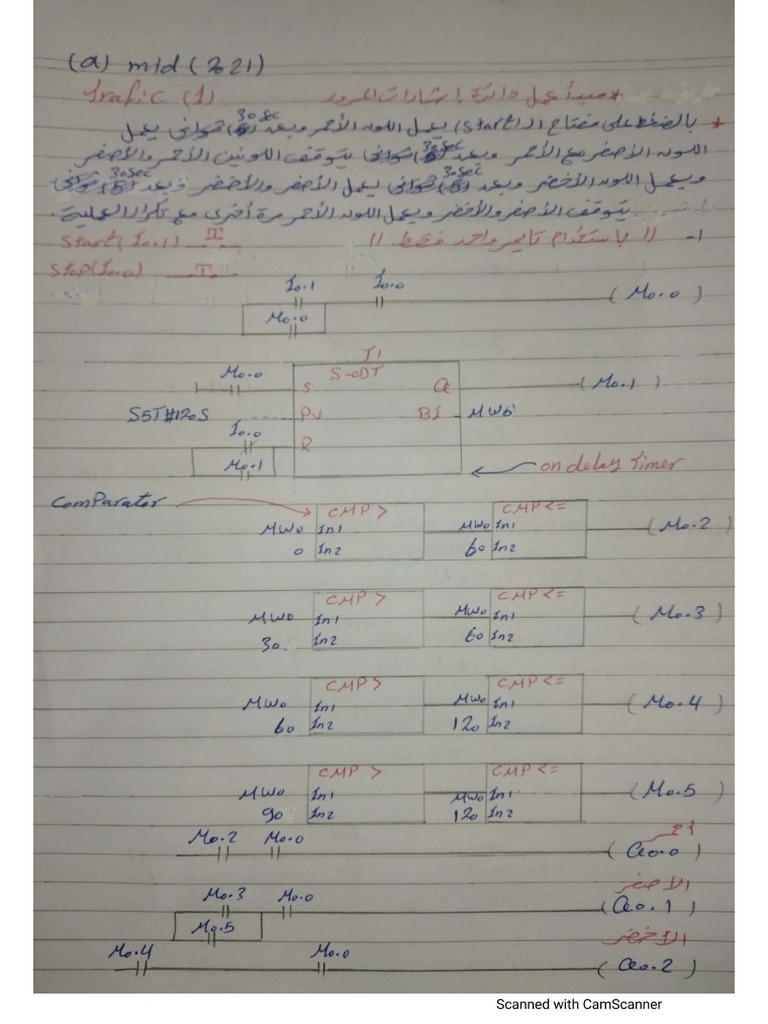 (a) mid (2021)
Trafic (1) * مبدأ عمل دائرة إشارات المرور
* بالضغط على مفتاح الـ (start) يعمل اللون الأحمر وبعد 30sec ثواني يعمل
اللون الأصفر مع الأحمر وبعد 30sec ثواني يتوقف اللونين الأحمر والأصفر
ويعمل اللون الأخضر وبعد 30sec ثواني يعمل الأصفر والأخضر وبعد 30sec ثواني
يتوقف الأصفر والأخضر ويعمل اللون الأحمر مرة أخرى مع تكرار العملية.
1- " باستخدام تايمر واحد فقط "
Start(I0.1) T
Stop(I0.0) T
I0.1 I0.0 (M0.0)
M0.0
T1
M0.0 S-ODT
S Q (M0.1)
S5T#120S PV BI MW0
I0.0
R
M0.1
on delay Timer
Comparator CMP > CMP <=
MW0 In1 MW0 In1 (M0.2)
0 In2 60 In2
CMP > CMP <=
MW0 In1 MW0 In1 (M0.3)
30 In2 60 In2
CMP > CMP <=
MW0 In1 MW0 In1 (M0.4)
60 In2 120 In2
CMP > CMP <=
MW0 In1 MW0 In1 (M0.5)
90 In2 120 In2
M0.2 M0.0 (Q0.0)
الأصفر
M0.3 M0.0 (Q0.1)
M0.5
الأخضر
M0.4 M0.0 (Q0.2)
Scanned with CamScanner